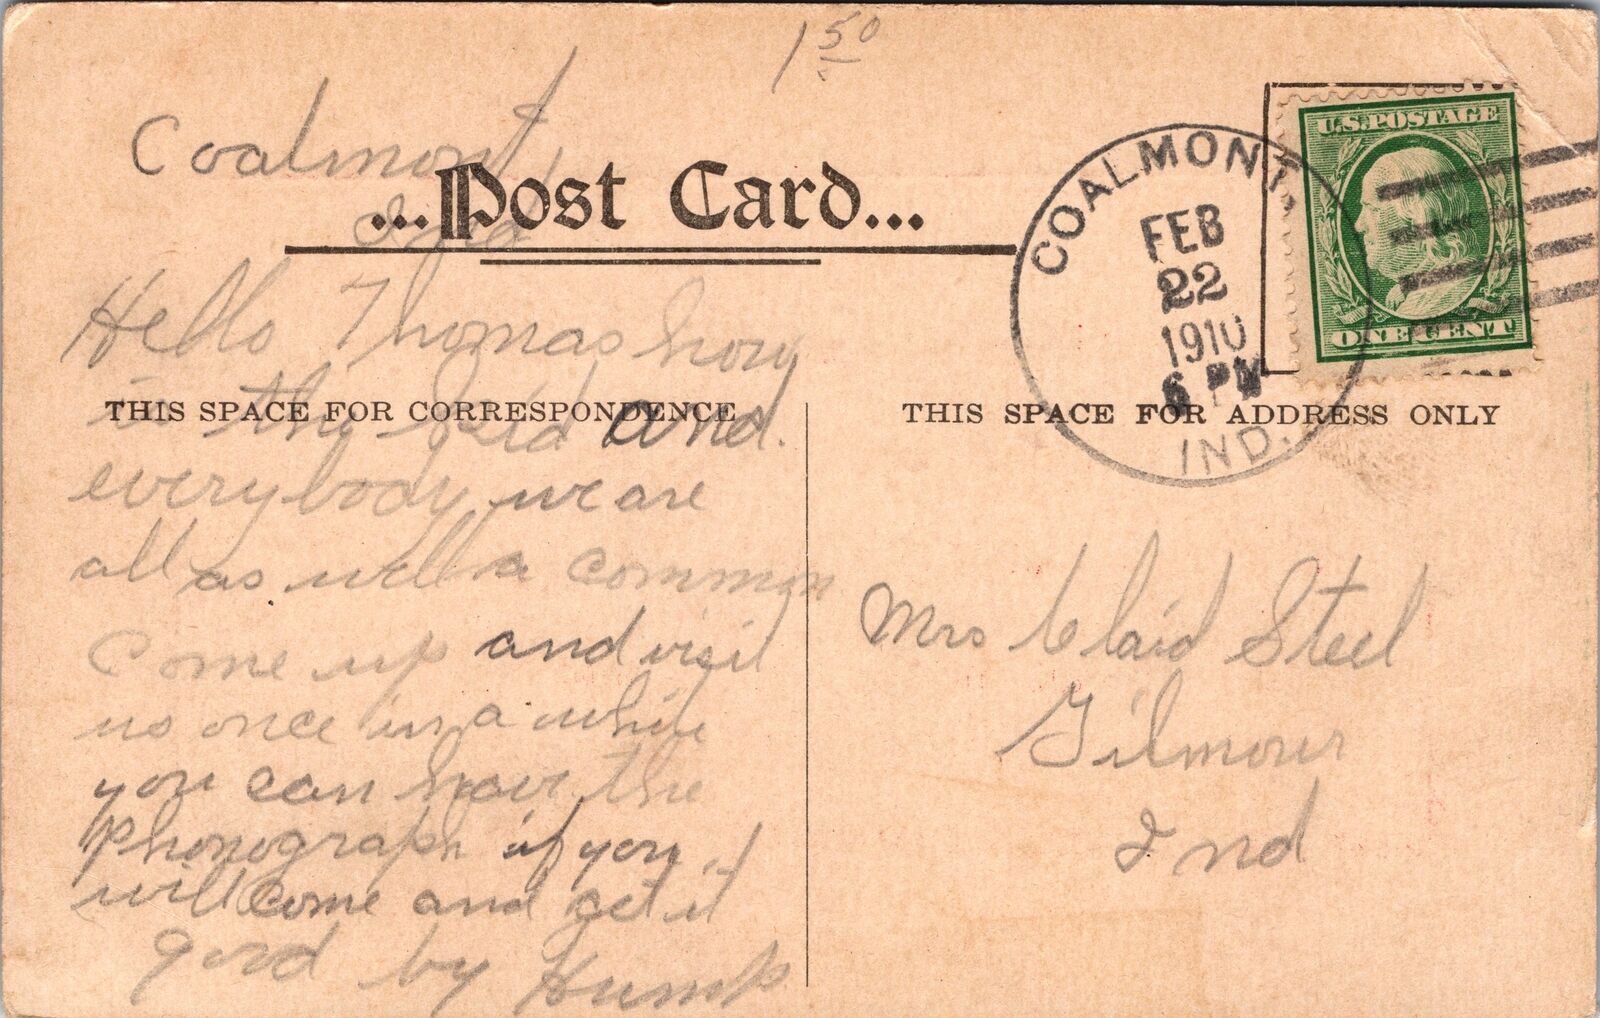 1 50
Coalmont
Ind
...Post Card...
COALMONT,
FEB
22
1910
6 PM
IND.
U.S.POSTAGE
ONE CENT
THIS SPACE FOR CORRESPONDENCE
THIS SPACE FOR ADDRESS ONLY
Hello Thomas how
is thy and
everybody we are
all as well a common
come up and visit
us once in a while
you can have the
phonograph if you
will come and get it
good by Hump
Mrs Claid Steel
Gilmour
Ind